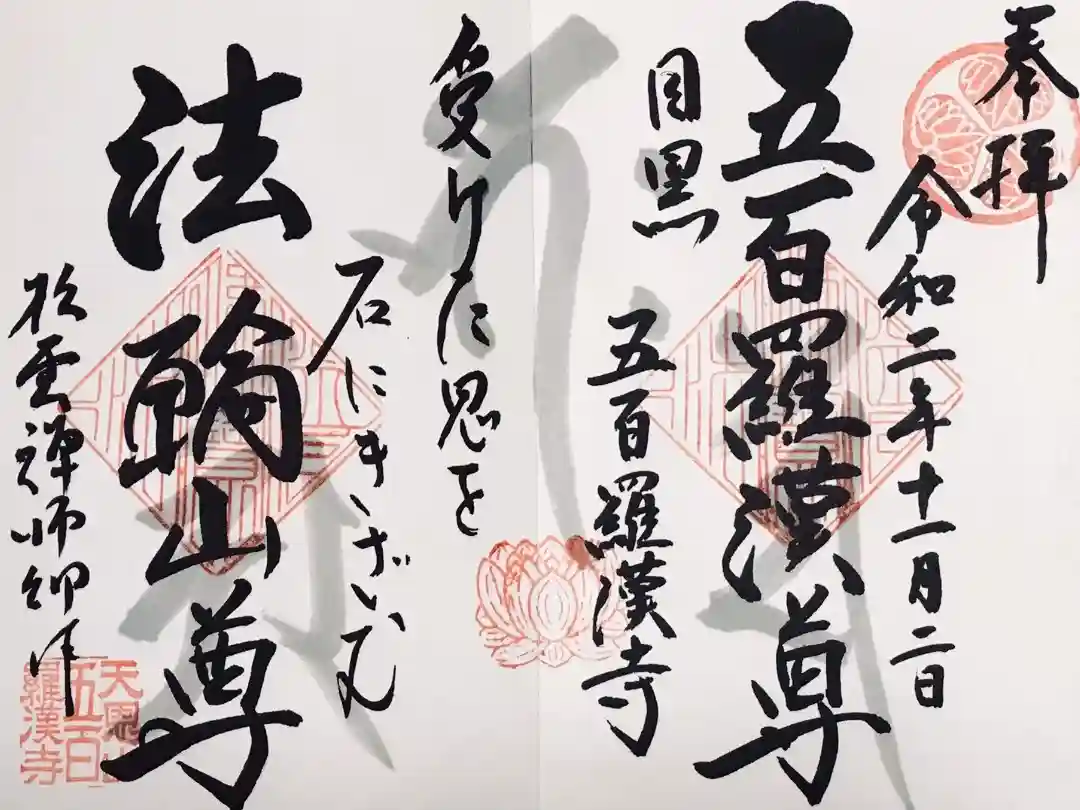 奉拝
令和二年十一月二日
五百羅漢尊
目黒
五百羅漢寺
受けた恩を
石にきざむ
法輪山尊
松雲禅師御作
天恩山
五百
羅漢寺